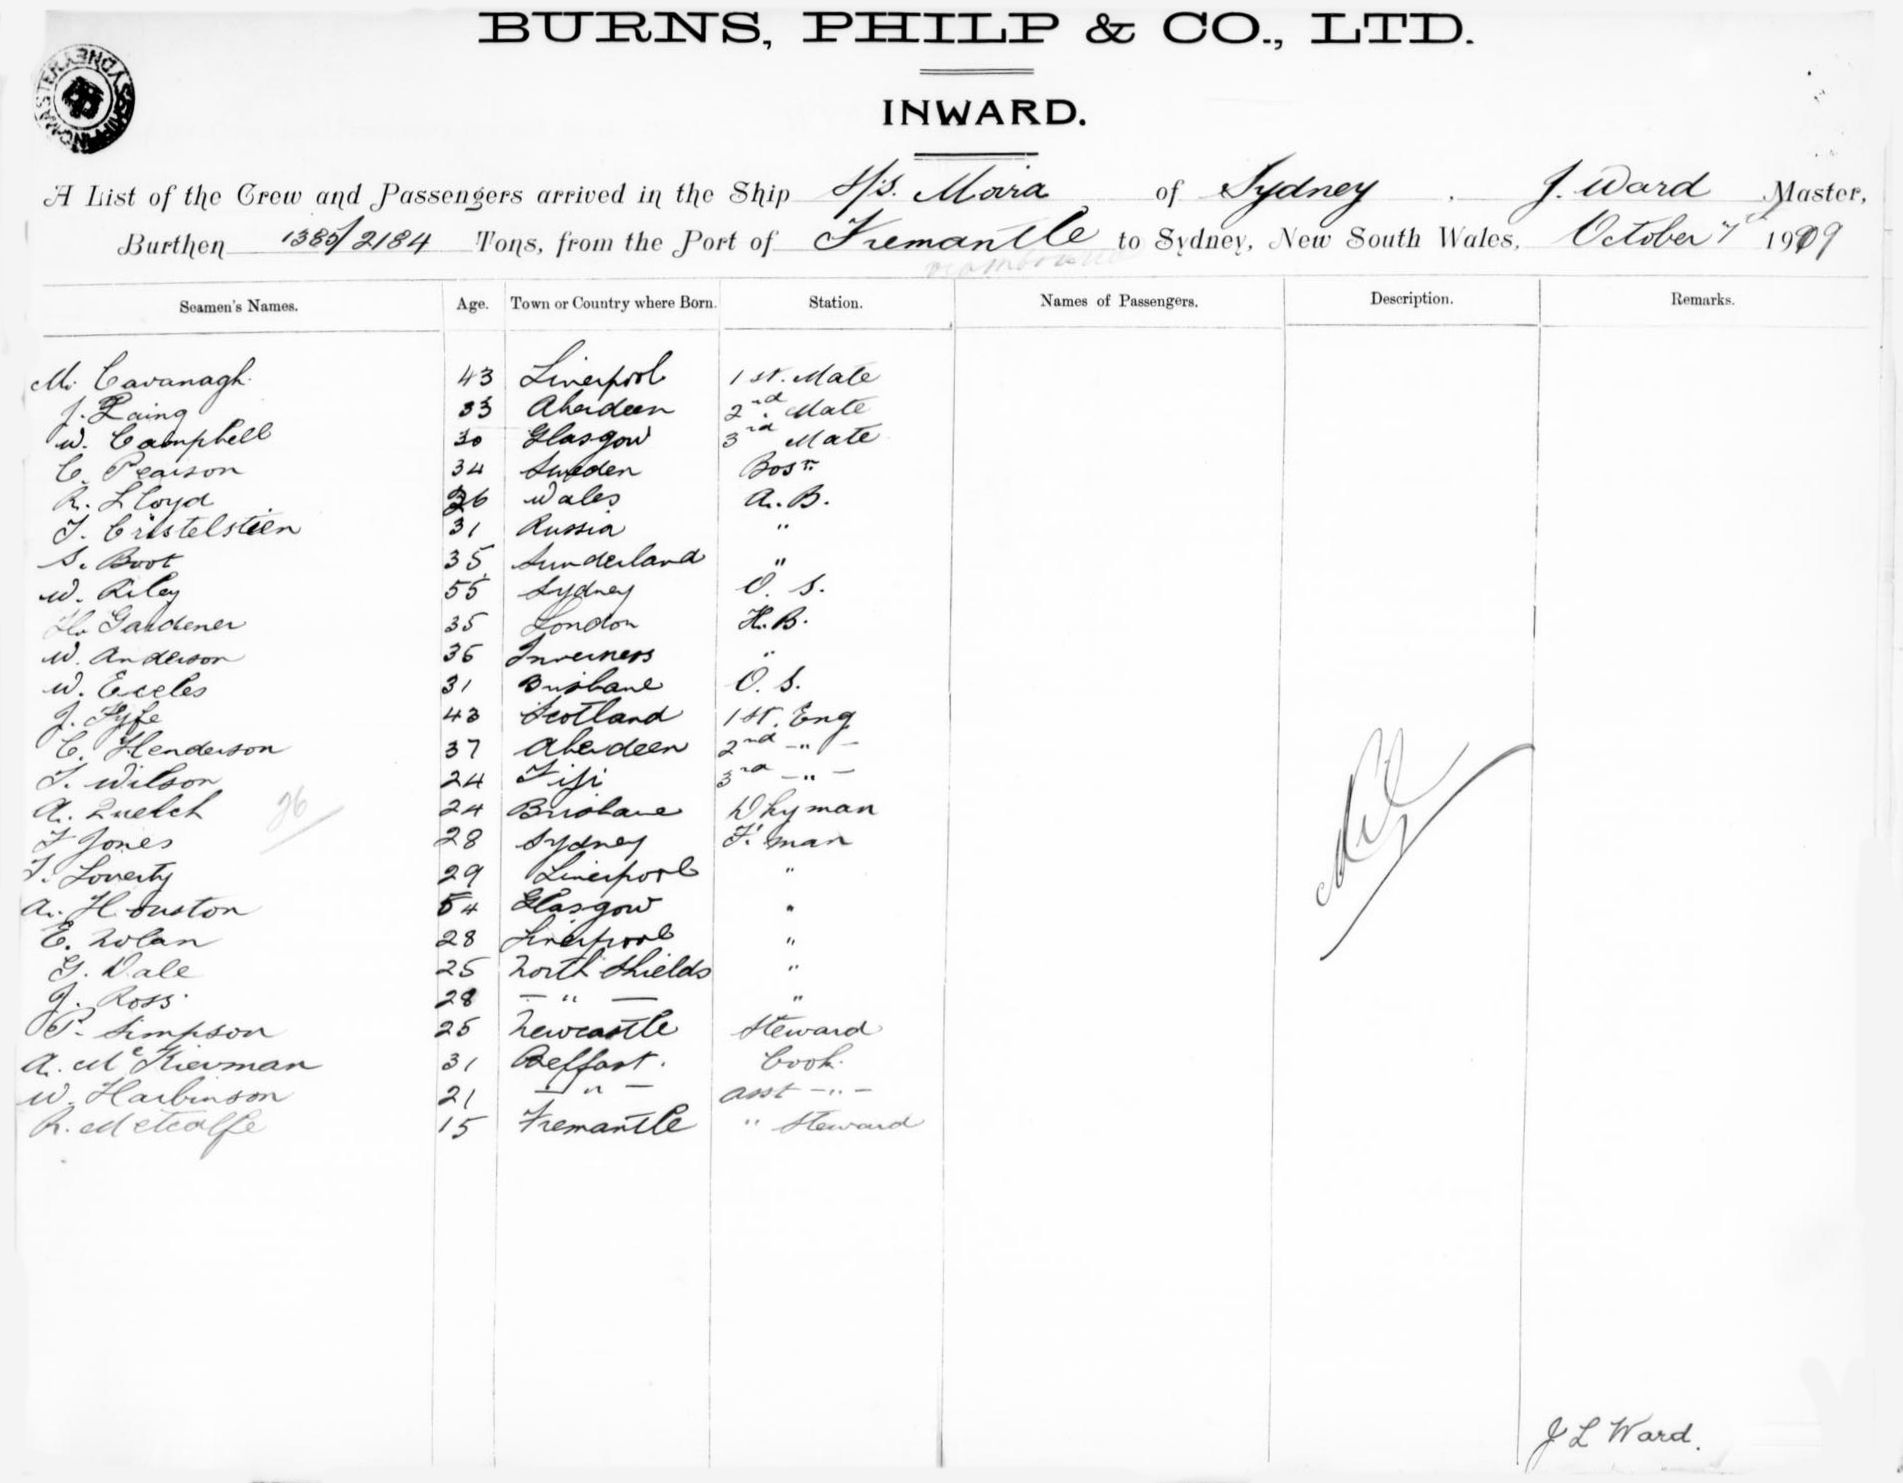 BURNS, PHILP & CO., LTD.
SHIPPING MASTER SYDNEY
INWARD.
A List of the Crew and Passengers arrived in the Ship S/S. Moira of Sydney, J. Ward Master,
Burthen 1385/2184 Tons, from the Port of Fremantle to Sydney, New South Wales, October 7th 1909
Seamen's Names. Age. Town or Country where Born. Station. Names of Passengers. Description. Remarks.
M. Cavanagh. 43 Liverpool 1st. Mate
J. Laing 33 Aberdeen 2nd. Mate
W. Campbell 30 Glasgow 3rd Mate
C. Pearson 34 Sweden Bosn.
R. Lloyd 36 Wales A.B.
T. Cristelstien 31 Russia "
S. Boot 35 Sunderland "
W. Riley 55 Sydney O. S.
H. Gardener 35 London A.B.
W. Anderson 36 Inverness "
W. Eccles 31 Brisbane O. S.
J. Fyfe 43 Scotland 1st. Eng
C. Henderson 37 Aberdeen 2nd - " -
T. Wilson 24 Fiji 3rd - " -
A. Quelch 24 Brisbane Dkyman
26
F Jones 28 Sydney F'man
T. Loverty 29 Liverpool "
A. Houston 54 Glasgow "
E. Nolan 28 Liverpool "
G. Dale 25 North Shields "
J. Ross. 28 - " - "
P. Simpson 25 Newcastle Steward
A. McKiernan 31 Belfast. Cook.
W. Harbinson 21 - " - asst - " -
R. Metcalfe 15 Fremantle " Steward
Nil
J L Ward.